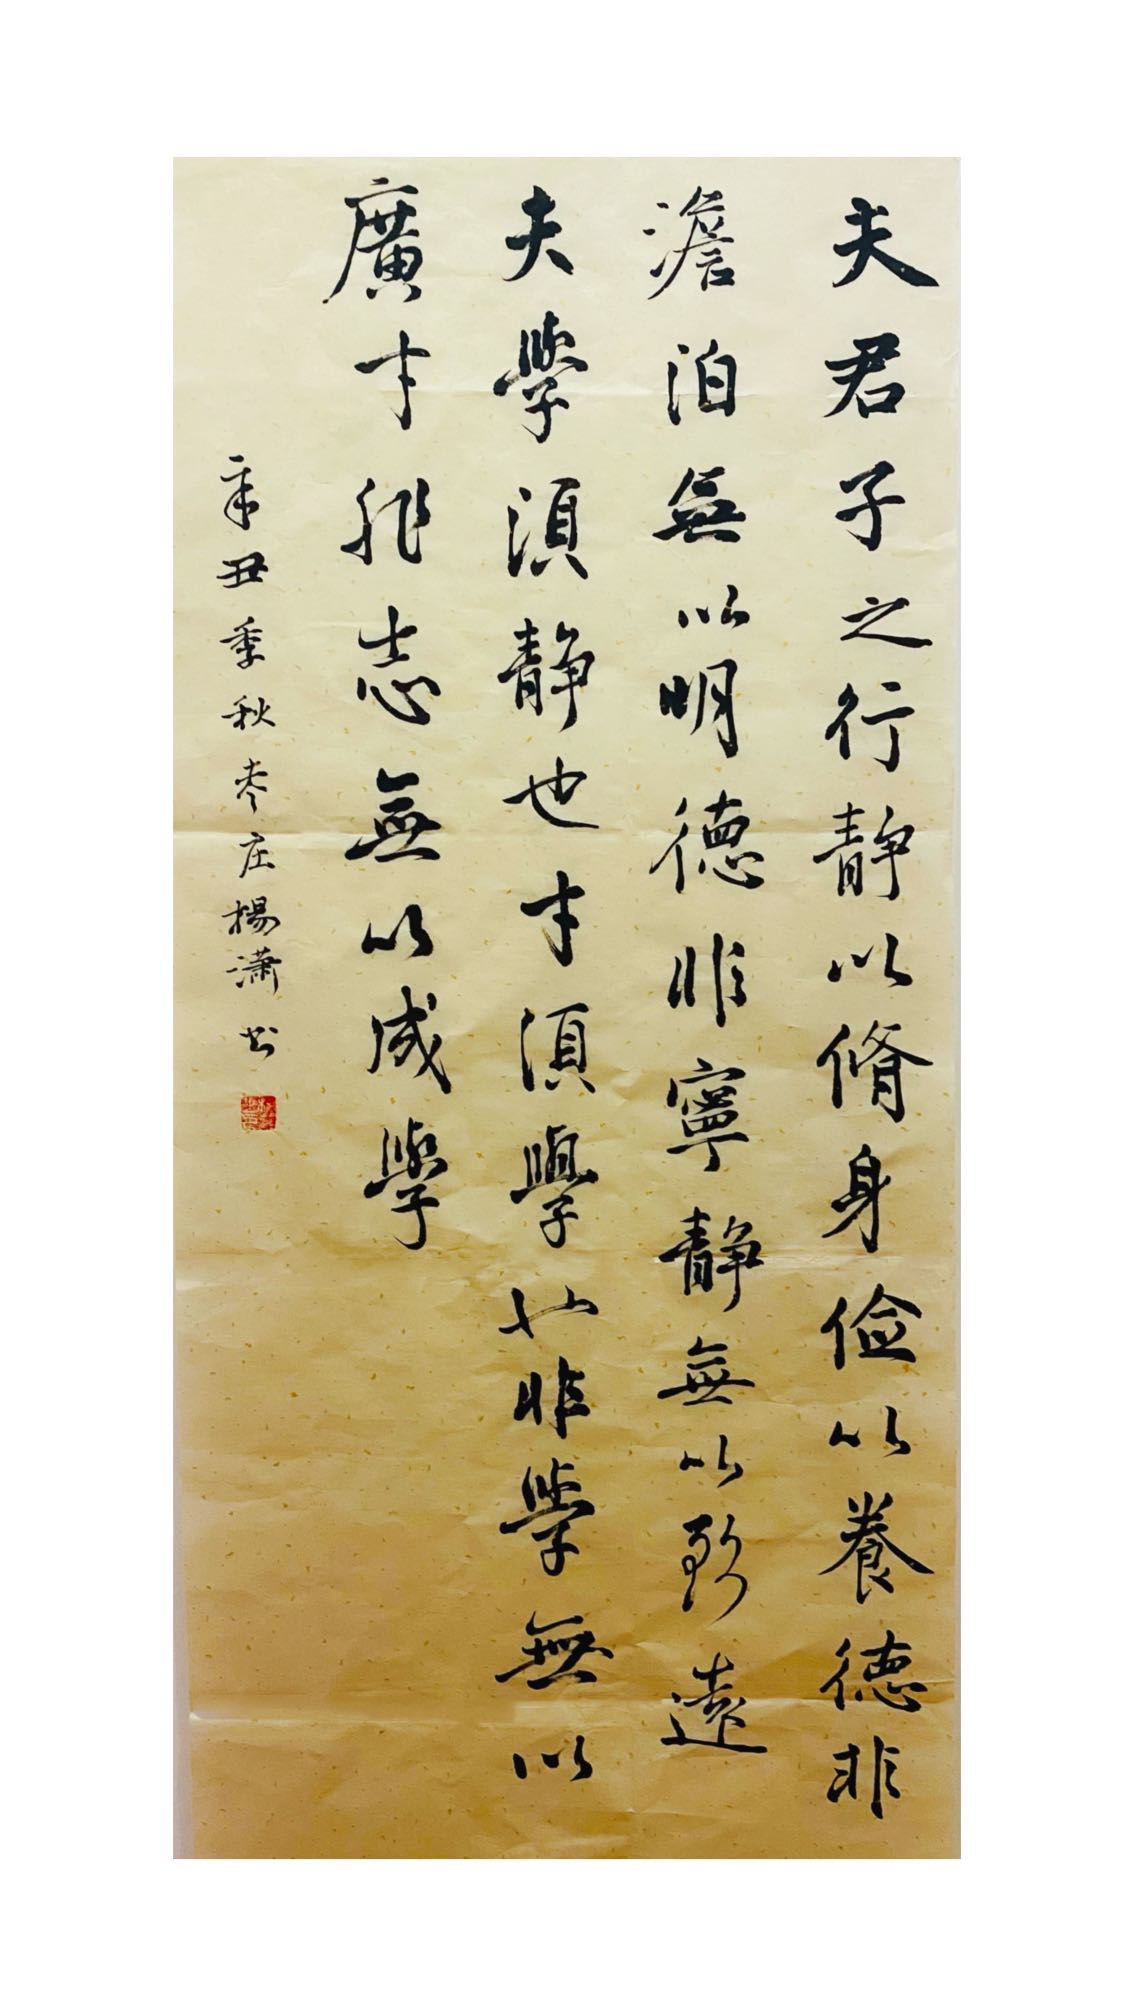 夫君子之行静以脩身儉以養德非
澹泊無以明德非寧静無以致遠
夫學須静也才須學也非學無以
廣才非志無以成學
辛丑季秋枣庄楊潇书